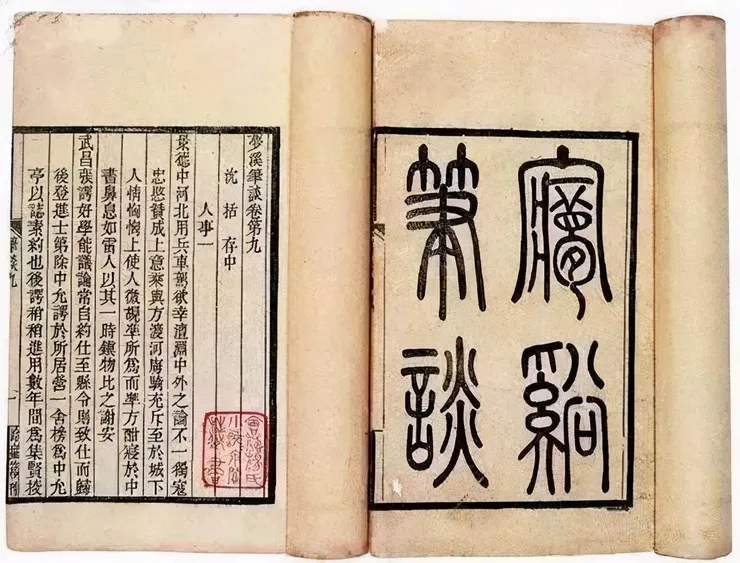 㝱谿
筆談
夢溪筆談卷第九
沈括 存中
人事一
景德中河北用兵車駕欲幸澶淵中外之論不一獨寇
忠愍贊成上意乘輿方渡河虜騎充斥至於城下
人情恟恟上使人微覘準所爲而準方酣寢於中
書鼻息如雷人以其一時鎮物比之謝安
武昌張諤好學能議論常自約仕至縣令則致仕而歸
後登進士第除中允諤於所居營一舍榜爲中允
亭以誌素約也後諤稍稍進用數年間爲集賢校
筆談九
一